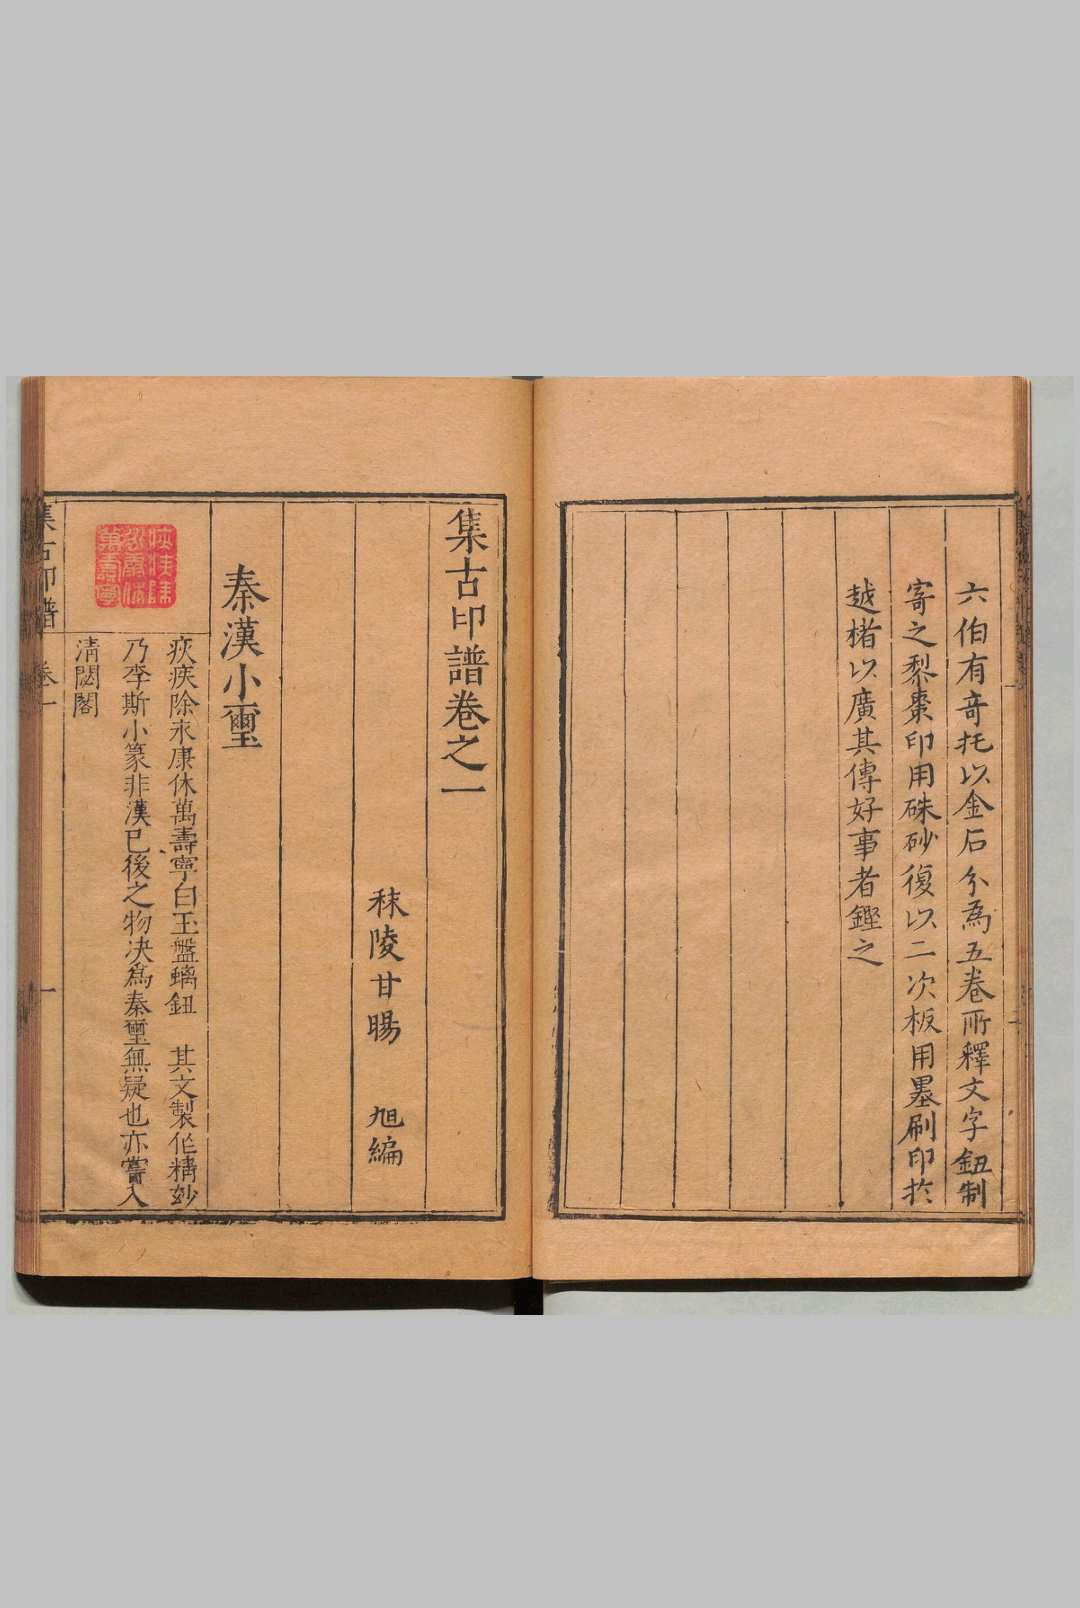 六伯有奇托以金石分為五卷所釋文字鈕制
寄之梨棗印用硃砂復以二次板用墨刷印於
越楮以廣其傳好事者鑒之
集古印譜卷之一
秣陵甘暘 旭編
秦漢小璽
疢疾除永康休萬壽寧
疢疾除永康休萬壽寧白玉盤螭鈕 其文製作精妙
乃李斯小篆非漢已後之物决爲秦璽無疑也亦嘗入
清閟閣
集古印譜 卷一 一